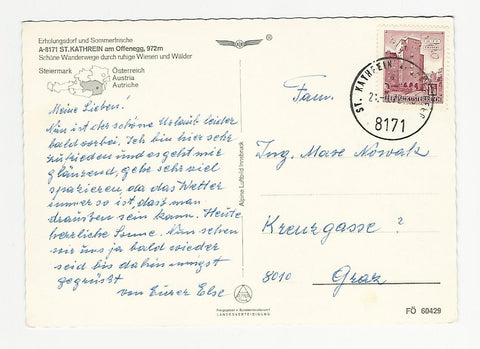 Erholungsdorf und Sommerfrische
A-8171 ST. KATHREIN am Offenegg, 972m
Schöne Wanderwege durch ruhige Wiesen und Wälder
Steiermark
Österreich
Austria
Autriche
Meine Lieben!
Nun ist der schöne Urlaub leider
bald vorbei. Ich bin hier sehr
zufrieden und es geht mir
glänzend, gehe sehr viel
spazieren, da das Wetter
immer so ist, dass man
draußen sein kann. Heute
herrliche Sonne. Nun sehen
wir uns ja bald wieder
seid bis dahin innigst
gegrüßt
von Eurer Else
Alpine Luftbild Innsbruck
Freigegeben v. Bundesministerium f.
LANDESVERTEIDIGUNG
ST. KATHREIN
8171
REPUBLIK ÖSTERREICH
Fam.
Ing. Max Nowak
Kreuzgasse ?
8010 Graz
FÖ 60429